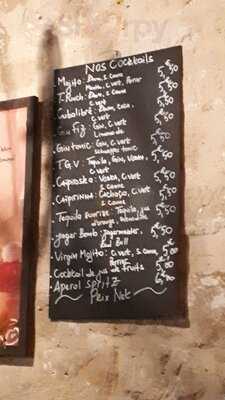 Nos Cocktails
Mojito: Rhum, S. canne
Menthe, C. vert, Perrier 5,50
T. Punch: Rhum, S. canne
C. vert 5,50
Cubalibre: Rhum, Coca,
C. vert 5,50
Gin Fiz: Gin, C. vert
Limonade 5,50
Gin tonic: Gin, C. vert
Schweppes tonic 5,50
T.G.V: Tequila, Gin, Vodka,
C. vert 5,50
Caïprosta: Vodka, C. vert
S. canne 5,50
Caïprinha: Cachaça, C. vert
S. canne 5,50
Tequila Sunrise: Tequila, jus
d'orange, Grenadine 5,50
Jager Bomb: Jagermeister,
Red Bull 5,50
Virgin Mojito: C. vert, S. canne
Perrier
Cocktail de jus de Fruits
Aperol Spritz
Prix Net